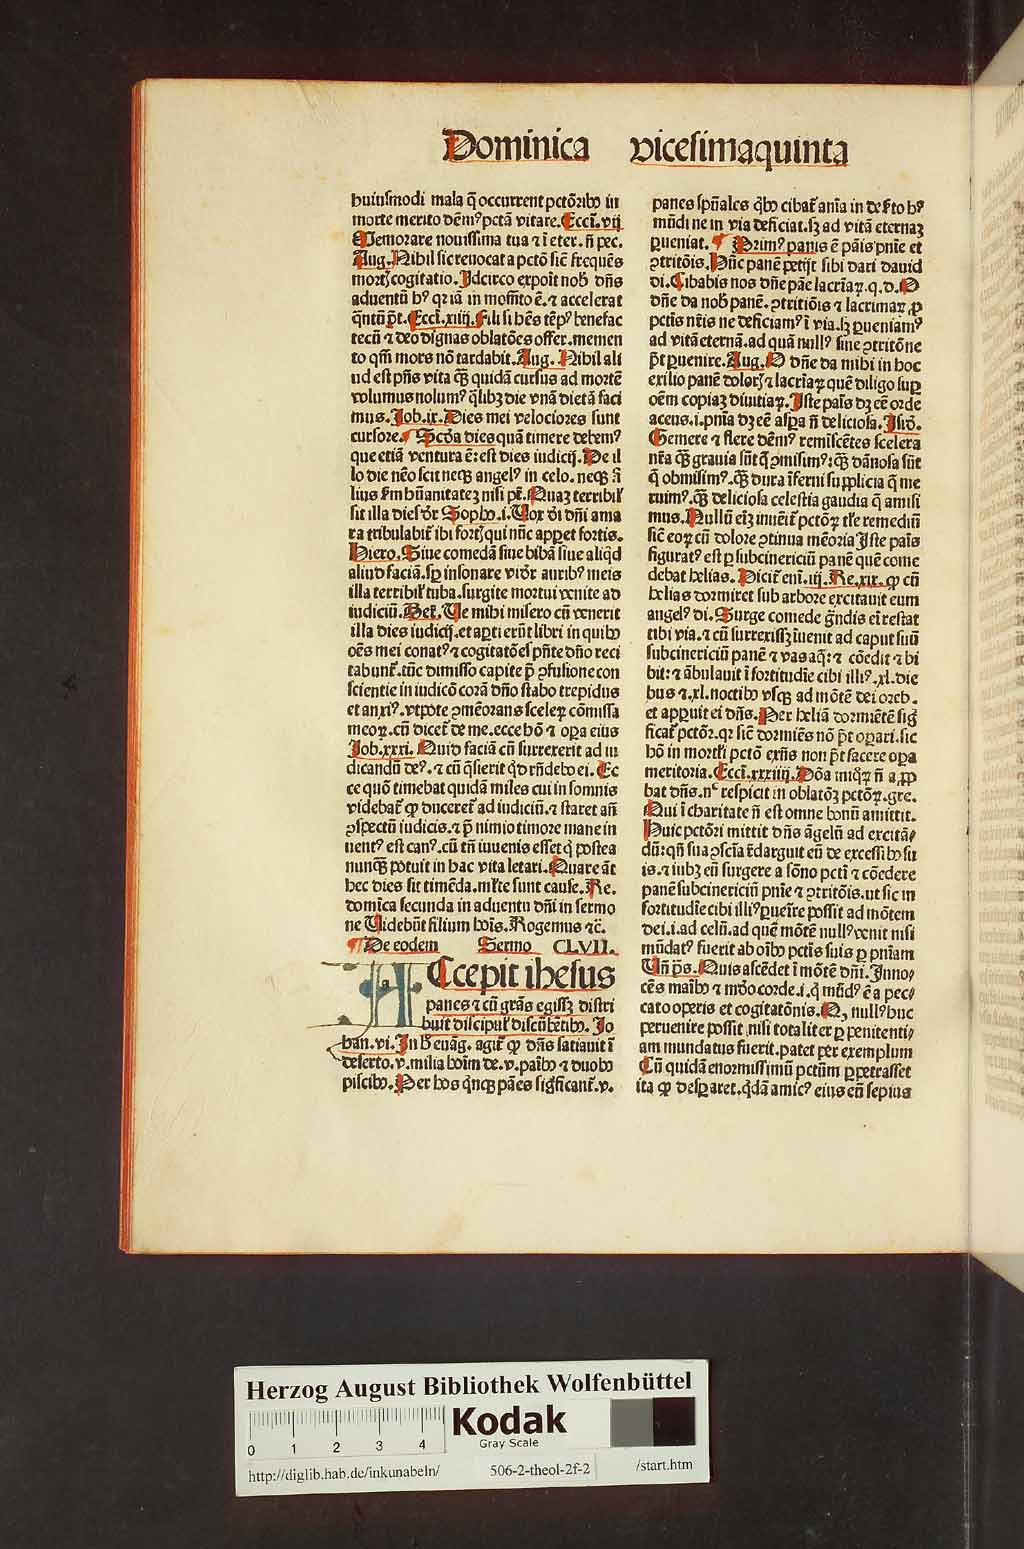 Dominica vicesimaquinta
huiusmodi mala q̄ occurrent pctōribꝰ in
morte merito dēmꝰ pctā vitare. Eccī. vij
Memorare nouissima tua ⁊ ī eter. ñ pec.
Aug. Nihil sic reuocat a pctō sic̄ frequēs
mortꝭ cogitatio. Idcirco expoīt nob̄ dn̄s
aduentū hꝰ qr iā in momēto ē. ⁊ accelerat
q̄ntū p̄t. Eccī. xiiij. Fili si hēs tēpꝰ benefac
tecū ⁊ deo dignas oblatōes offer. memen
to qm̄ mors nō tardabit. Aug. Nihil ali
ud est pn̄s vita qꝫ quidā cursus ad mortē
volumus nolumꝰ q̄libꝫ die vnā dietā faci
mus. Job. ix. Dies mei velociores sunt
cursore. ¶ Scd̄a dies quā timere debemꝰ
que etiā ventura ē: est dies iudicij. De il
lo die nēo scit neqꝫ angelꝰ in celo. neqꝫ ā
lius ẜm hūanitatez nisi pr̄. Quaz terribilꝭ
sit illa dies dr̄ Sopho. i. Vox diei dn̄i ama
ra tribulabit̄ ibi fortꝭ qui nūc apꝑet fortis.
Hiero. Siue comedā siue bibā siue aliqd̄
aliud faciā. sꝑ insonare videt̄ auribꝰ meis
illa terribilꝭ tuba. surgite mortui venite ad
iudiciū. Ber̄. Ve mihi misero cū venerit
illa dies iudicij. et aꝑti erūt libri in quibꝰ
oēs mei conatꝰ ⁊ cogitatōes pn̄te dn̄o reci
tabunt̄. tūc dimisso capite p̄ ꝯfusione con
scientie in iudicō corā dn̄o stabo trepidus
et anxiꝰ. vtpote ꝯmēorans sceleꝝ cōmissa
meoꝝ. cū dicet̄ de me. ecce hō ⁊ oꝑa eius
Job. xxxi. Quid faciā cū surrexerit ad iu
dicandū deꝰ. ⁊ cū q̄sierit qd̄ rn̄debo ei. Ec
ce quō timebat quidā miles cui in somnis
videbat̄ ꝙ duceret̄ ad iudiciū. ⁊ staret añ
ꝯspectū iudicis. ⁊ p̄ nimio timore mane in
uentꝰ est canꝰ. cū tn̄ iuuenis esset q̇ postea
nunqꝫ potuit in hac vita letari. Quare āt
hec dies sit timēda. mlte sunt cause. Re.
domīca secunda in aduentu dn̄i in sermo
ne Videbūt filium hoīs. Rogemus ⁊c̄.
¶ De eodem Sermo CLVII.
ACcepit ihesus
panes ⁊ cū grās egissꝫ distri
buit discipulꝭ discūbētibꝰ. Jo
han. vi. In hͦ euāg. agit̄ ꝙ dn̄s satiauit ī
deserto. v. milia hoīm de. v. paībꝰ ⁊ duobꝰ
piscibꝰ. Per hos q̄nqꝫ pāes significant̄. v.
panes spūales q̇bꝰ cibat̄ anīa in deserto hꝰ
mūdi ne in via deficiat. sꝫ ad vitā eternaꝫ
ꝑueniat. ¶ Primꝰ panis ē pāis pn̄ie et
ꝯtritōis. Hūc panē petijt sibi dari dauid
di. Cibabis nos dn̄e pāe lacrīaꝝ. q. d. O
dn̄e da nob̄ panē. ꝯtritiōis ⁊ lacrimaꝝ ꝓ
pctīs nr̄is ne deficiamꝰ ī via. sꝫ ꝑueniamꝰ
ad vitā eternā. ad quā nullꝰ sine ꝯtritōne
p̄t ꝑuenire. Aug. O dn̄e da mihi in hoc
exilio panē dolorꝭ ⁊ lacrīaꝝ quē diligo suꝑ
oēm copiaꝫ diuitiaꝝ. Iste paīs dꝫ eē orde
aceus. i. pn̄ia dꝫ eē asꝑa ñ deliciosa. Isid̄.
Gemere ⁊ flere dēmꝰ remiscētes scelera
nr̄a qꝫ grauia sūt q̄ ꝯmisimꝰ: qꝫ dānosa sūt
q̄ obmisimꝰ. qꝫ dura īferni supplicia q̄ me
ruimꝰ. qꝫ deliciosa celestia gaudia q̄ amisi
mus. Nullū eīꝫ inuēit̄ pctōꝝ tłe remediū
sic̄ eoꝝ cū dolore ꝯtinua mēoria Iste paīs
figuratꝰ est ꝑ subcinericiū panē quē come
debat helias. Dicit̄ eni. iij. Re. xix. ꝙ cū
helias dormiret sub arbore excitauit eum
angelꝰ di. Surge comede g̈ndis eī restat
tibi via. ⁊ cū surrexissꝫ īuenit ad caput suū
subcinericiū panē ⁊ vas aq̄: ⁊ cōedit ⁊ bi
bit: ⁊ ābulauit ī fortitudīe cibi illiꝰ. xl. die
bus ⁊. xl. noctibꝰ vsqꝫ ad mōtē dei oreb.
et apꝑuit ei dn̄s. Per heliā dormiētē sig
ficat̄ pctōr. qr sic̄ dormiēs nō p̄t oꝑari. sic
hō in mortłi pctō exn̄s non p̄t facere oꝑa
meritoria. Eccī. xxxiiij. Dōa iniqꝝ ñ aꝓ
bat dn̄s. nͨ respicit in oblatōꝫ pctōꝝ. gre.
Qui ī charitate ñ est omne bonū amittit.
Huic pctōri mittit dn̄s āgelū ad excitā/
dū: qn̄ sua ꝯscīa r̄darguit eū de excessibꝰ su
is. ⁊ iubꝫ eū surgere a sōno pctī ⁊ cōedere
panē subcinericiū pn̄ie ⁊ ꝯtritōis. vt sic in
fortitudīe cibi illiꝰ ꝑueīre possit ad mōtem
dei. i. ad celū. ad quē mōtē nullꝰ venit nisi
mūdatꝰ fuerit ab oībꝰ pctīs suis ꝑ pn̄iam
Vñ p̄s. Quis ascēdet ī mōtē dn̄i. Inno/
cēs maībꝰ ⁊ mūdo corde. i. q̇ mūdꝰ ē a pec/
cato operis et cogitatōnis. Qꝫ nullꝰ huc
peruenire possit nisi totalit̄ er ꝑ penitenti/
am mundatus fuerit. patet per exemplum
Cū quidā enormissimū pctūm ꝑpetrasset
ita ꝙ desꝑaret. qd̄ā amicꝰ eius eū sepius
Herzog August Bibliothek Wolfenbüttel
0 1 2 3 4
Kodak
Gray Scale
http://diglib.hab.de/inkunabeln/ 506-2-theol-2f-2 /start.htm